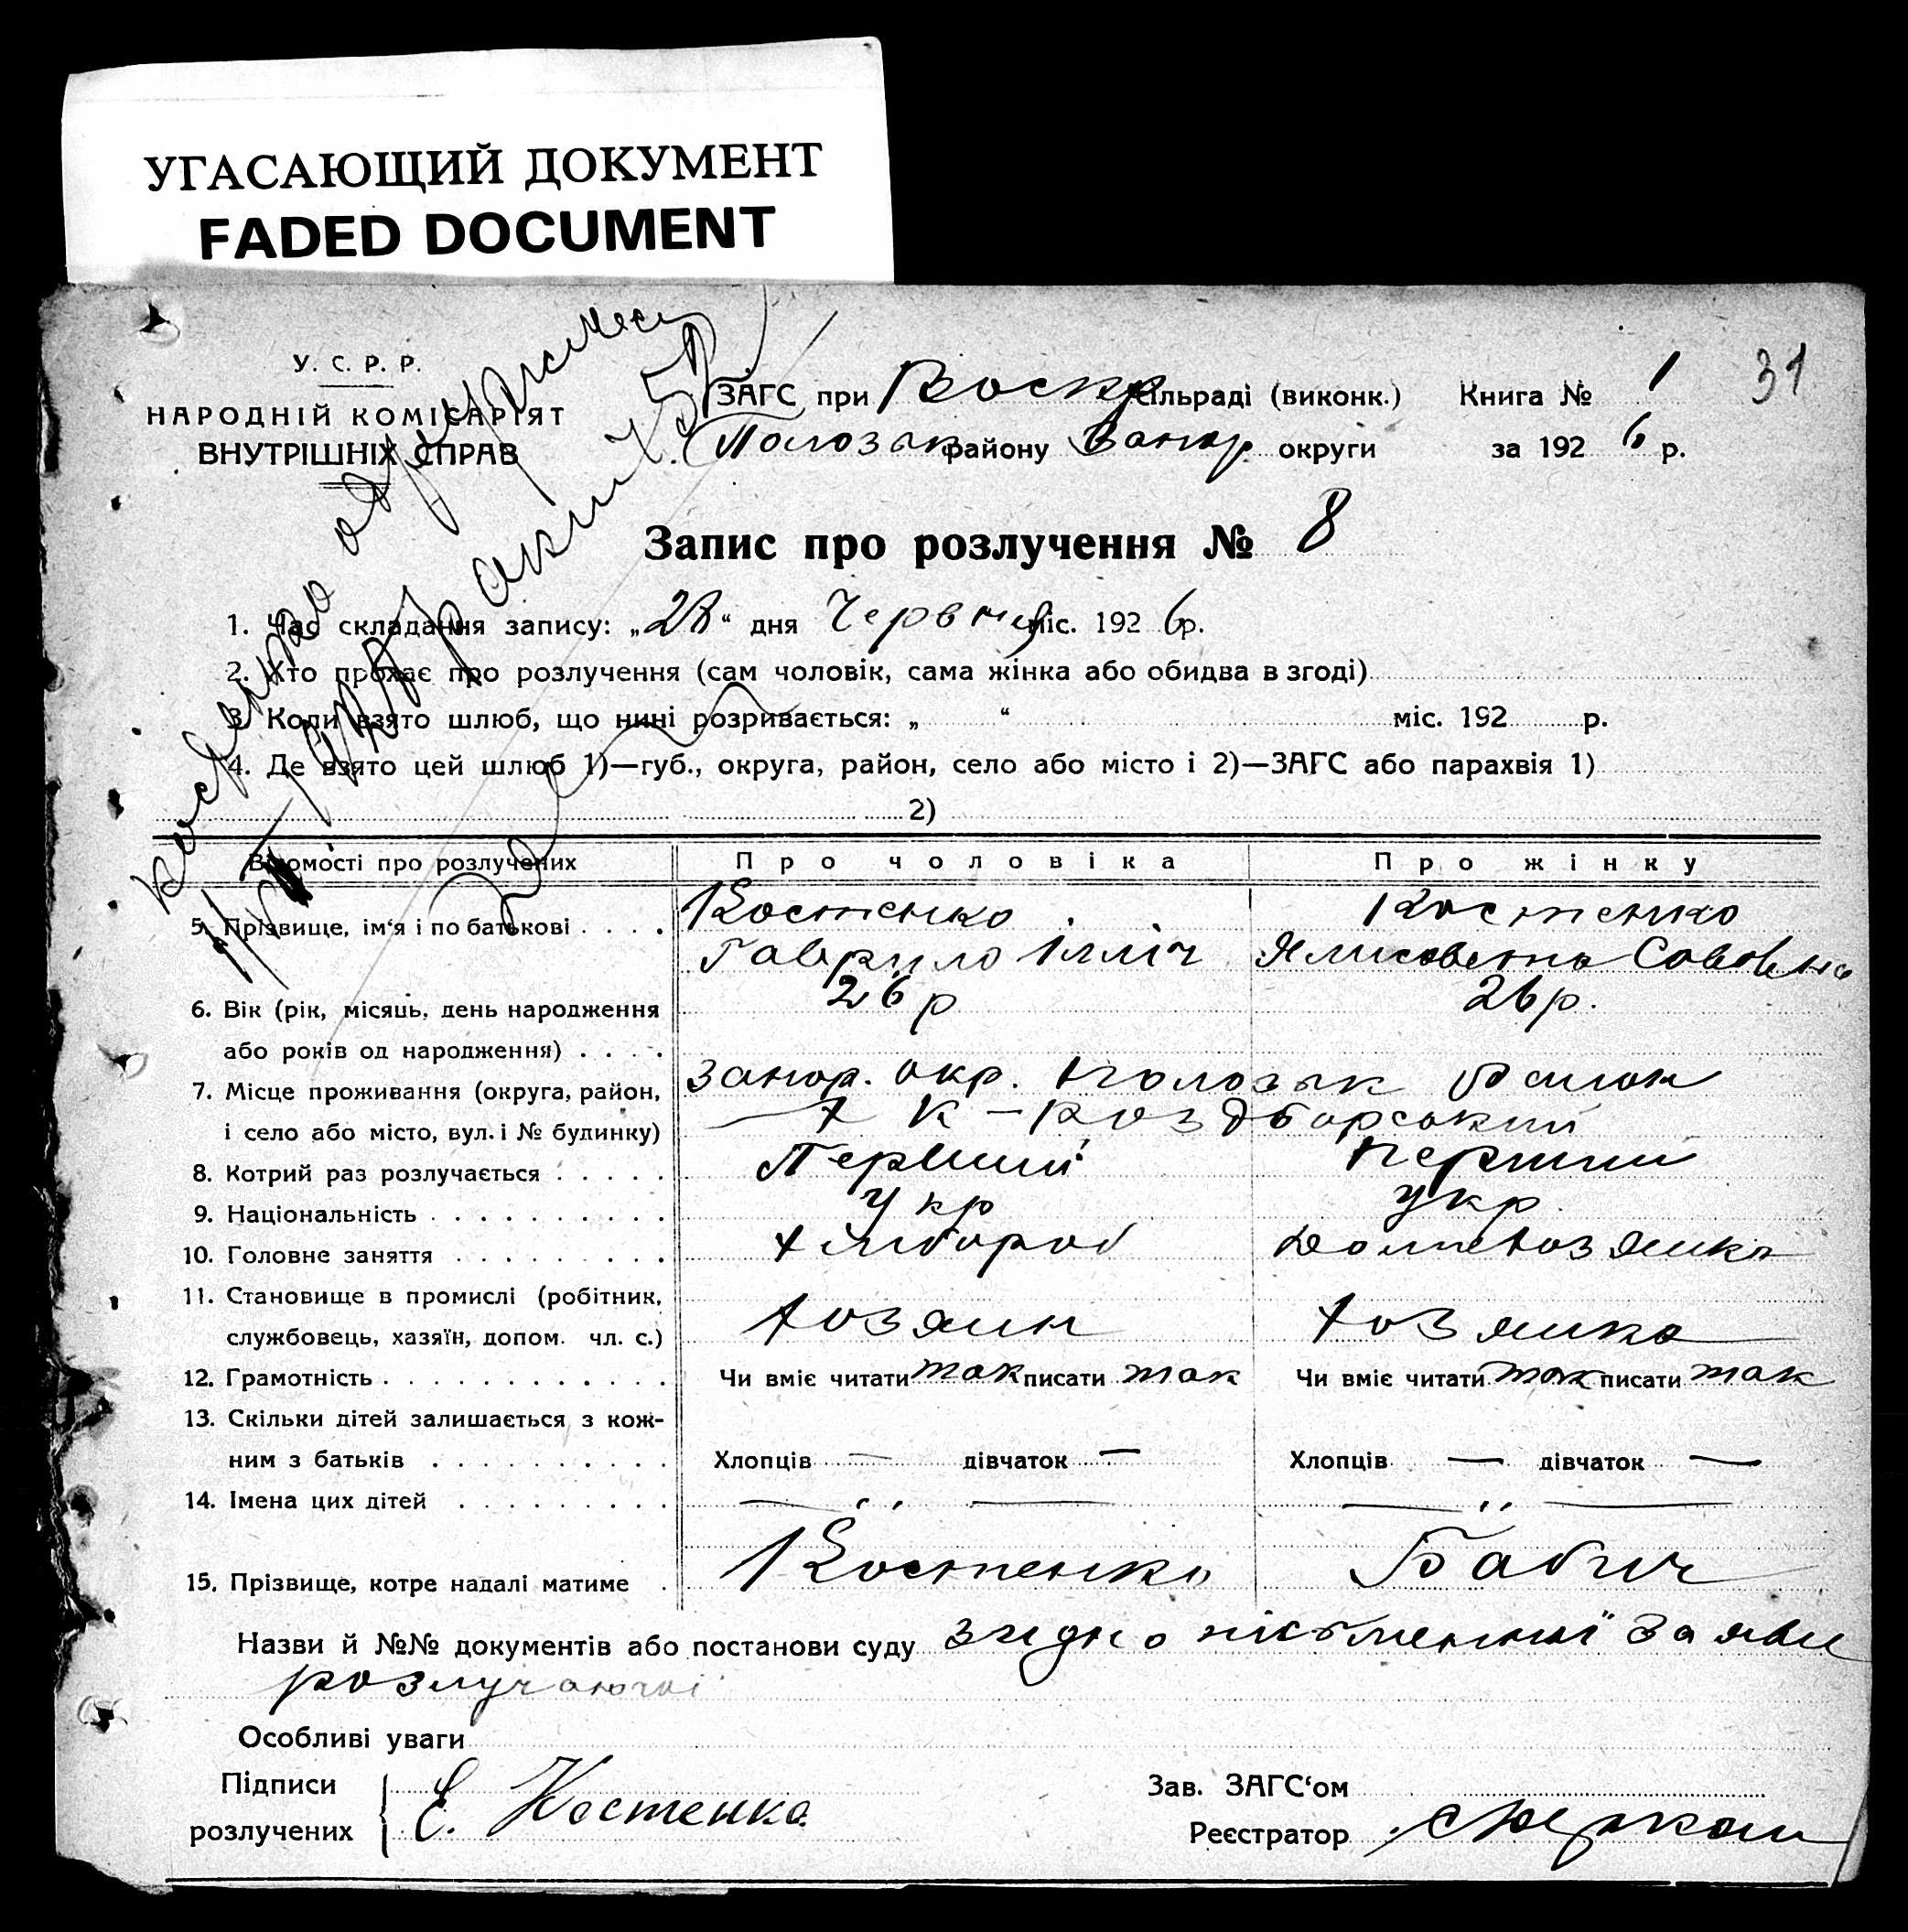 УГАСАЮЩИЙ ДОКУМЕНТ
FADED DOCUMENT
У. С. Р. Р.
НАРОДНІЙ КОМІСАРІЯТ
ВНУТРІШНІХ СПРАВ
ЗАГС при Воскр сільраді (виконк.) Книга № 1 31
району Запор округи за 1926 р.
Запис про розлучення № 8
1. Час складання запису: „28“ дня Червня міс. 1926 р.
2. Хто прохає про розлучення (сам чоловік, сама жінка або обидва в згоді)
3. Коли взято шлюб, що нині розривається: „ “ міс. 192 р.
4. Де взято цей шлюб 1)—губ., округа, район, село або місто і 2)—ЗАГС або парахвія 1)
2)
Відомості про розлучених Про чоловіка Про жінку
5. Прізвище, ім‘я і по батькові . . . . Костенко Костенко
Гаврило Ілліч Савовна
6. Вік (рік, місяць, день народження 26 р 26 р.
або років од народження) . . . .
7. Місце проживання (округа, район, Запор. окр.
і село або місто, вул. і № будинку)
8. Котрий раз розлучається . . . . . Первий перший
9. Національність . . . . . . . . . . укр укр
10. Головне заняття . . . . . . . . . хлібороб домохозяйка
11. Становище в промислі (робітник,
службовець, хазяїн, допом. чл. с.) хозяин хозяйка
12. Грамотність . . . . . . . . . . . . Чи вміє читати так писати так Чи вміє читати так писати так
13. Скільки дітей залишається з кож-
ним з батьків . . . . . . . . . . Хлопців — дівчаток — Хлопців — дівчаток —
14. Імена цих дітей . . . . . . . . .
15. Прізвище, котре надалі матиме . Костенко Бабич
Назви й №№ документів або постанови суду згідно письменної заяви
розлучаючої
Особливі уваги
Підписи Зав. ЗАГС‘ом
розлучених Е. Костенко Реєстратор